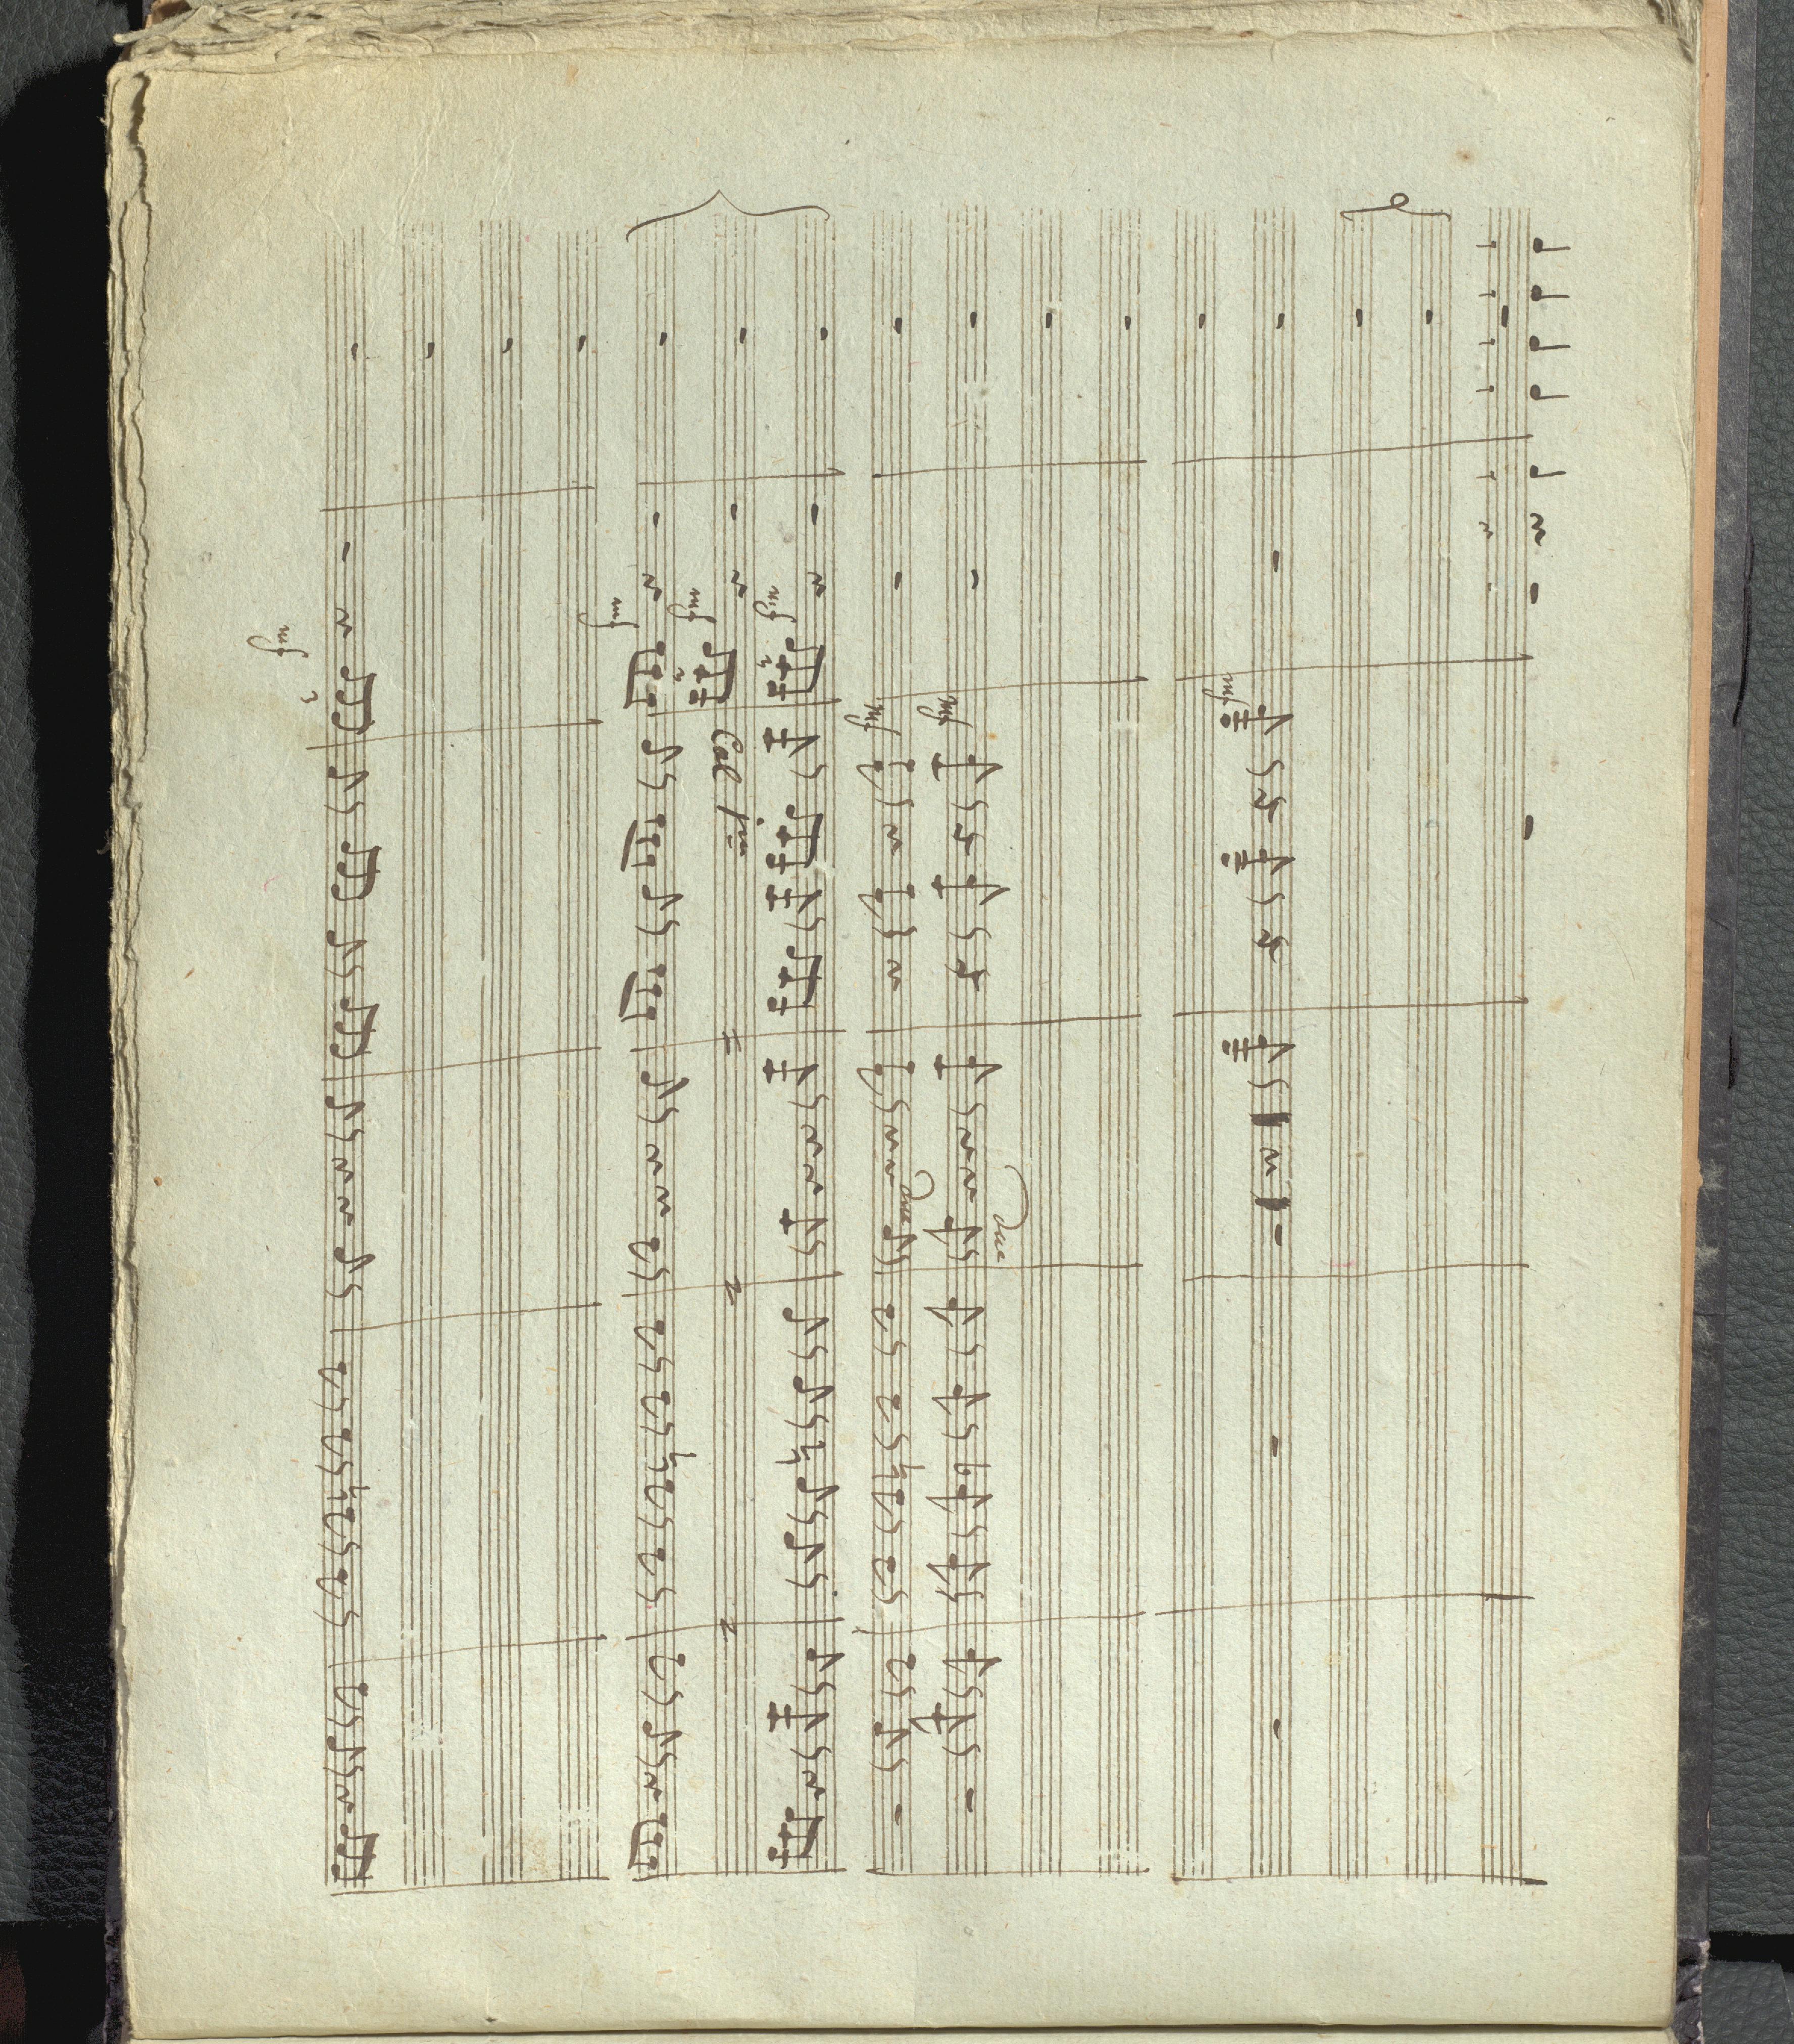 mf
mf
mf
due
due
mf
mf
Col p.mo
mf
mf
3